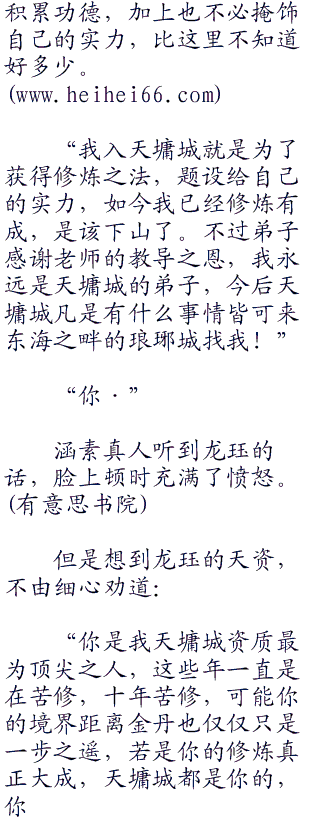 积累功德，加上也不必掩饰
自己的实力，比这里不知道
好多少。
(www.heihei66.com)
“我入天墉城就是为了
获得修炼之法，题设给自己
的实力，如今我已经修炼有
成，是该下山了。不过弟子
感谢老师的教导之恩，我永
远是天墉城的弟子，今后天
墉城凡是有什么事情皆可来
东海之畔的琅琊城找我！”
“你·”
涵素真人听到龙珏的
话，脸上顿时充满了愤怒。
(有意思书院)
但是想到龙珏的天资，
不由细心劝道：
“你是我天墉城资质最
为顶尖之人，这些年一直是
在苦修，十年苦修，可能你
的境界距离金丹也仅仅只是
一步之遥，若是你的修炼真
正大成，天墉城都是你的，
你